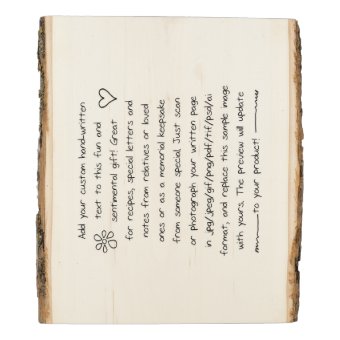 Add your custom handwritten
text to this fun and
sentimental gift! Great
for recipes, special letters and
notes from relatives or loved
ones or as a memorial keepsake
from someone special. Just scan
or photograph your written page
in jpg/jpeg/gif/png/pdf/tif/psd/ai
format, and replace this sample image
with yours. The preview will update
to your product!